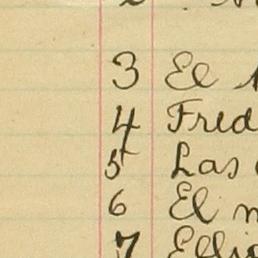 3 El
4 Fred
5 Las
6 El
7